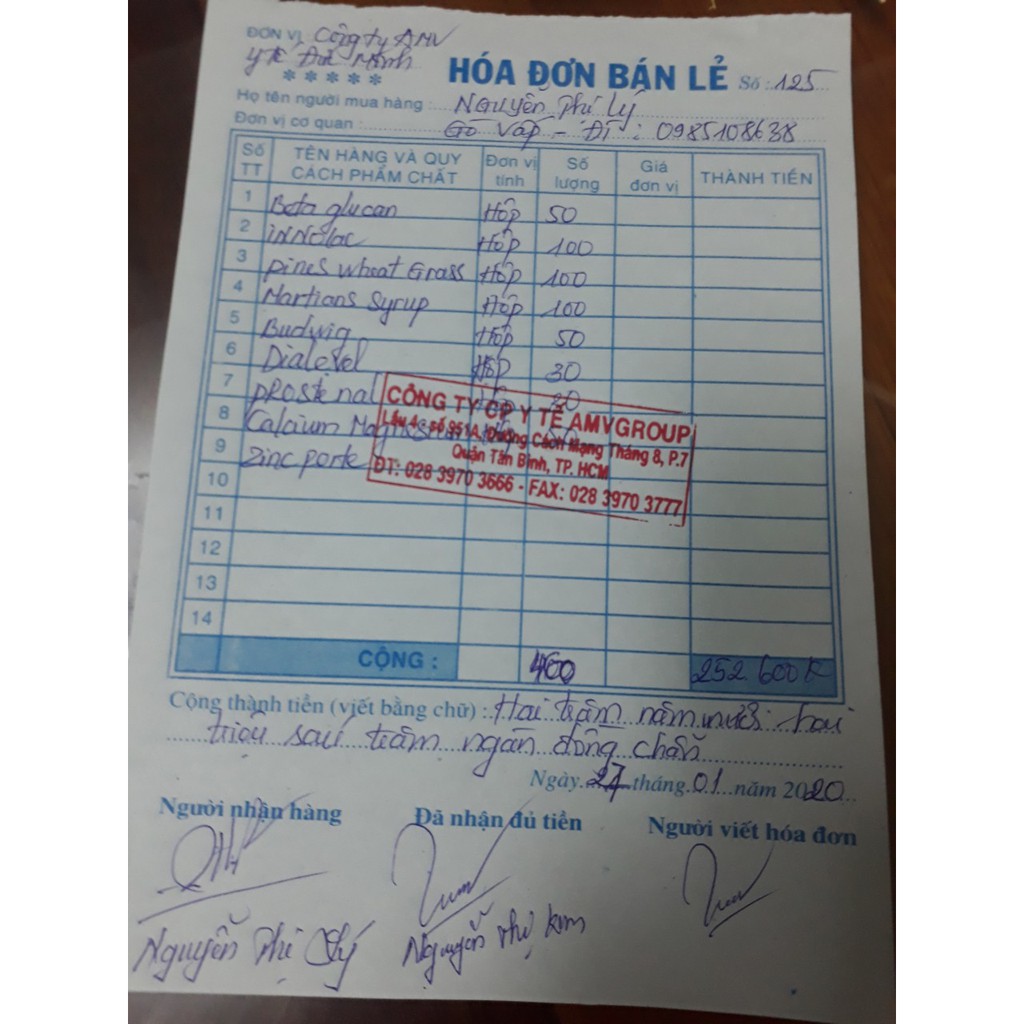 ĐƠN VỊ Công ty AMV
y tế Đức Minh
*****
HÓA ĐƠN BÁN LẺ Số: 125
Họ tên người mua hàng: Nguyễn Phi Lý
Đơn vị cơ quan: Gò Vấp - ĐT: 0985108638
Số TT TÊN HÀNG VÀ QUY CÁCH PHẨM CHẤT Đơn vị tính Số lượng Giá đơn vị THÀNH TIỀN
1 Beta glucan Hộp 50
2 iNNOlac Hộp 100
3 pines wheat Grass Hộp 100
4 Martians Syrup Hộp 100
5 Budwig Hộp 50
6 Dialevel Hộp 30
7 prostenal
8 Calcium
9 Zinc
10
11
12
13
14
CÔNG TY CP Y TẾ AMVGROUP
Lầu 4, số 951A, Đường Cách Mạng Tháng 8, P.7
Quận Tân Bình, TP. HCM
ĐT: 028 3970 3666 - FAX: 028 3970 3777
CỘNG: 252.600K
Cộng thành tiền (viết bằng chữ): Hai trăm năm mươi hai
triệu sáu trăm ngàn đồng chẵn
Ngày 27 tháng 01 năm 2020
Người nhận hàng Đã nhận đủ tiền Người viết hóa đơn
Nguyễn Phi Lý Nguyễn Thị Kim